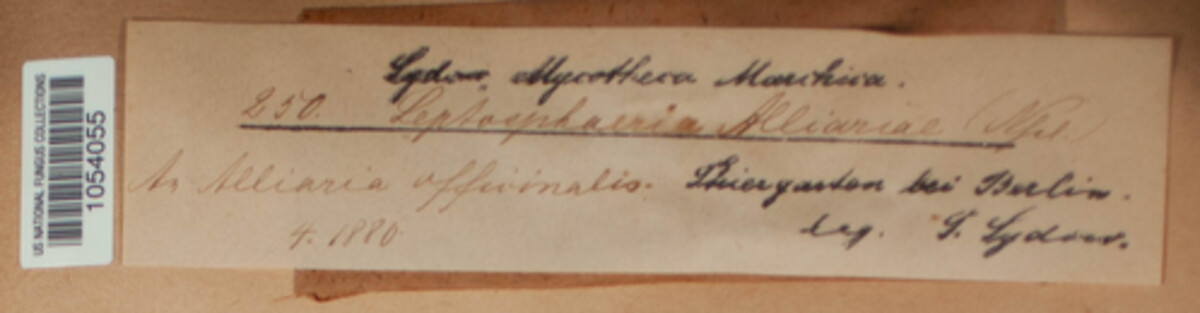 US NATIONAL FUNGUS COLLECTIONS
1054055
Sydow, Mycotheca Marchica.
250. Leptosphaeria Alliariae
An Alliaria officinalis. Thiergarten bei Berlin.
4. 1886 leg. P. Sydow.